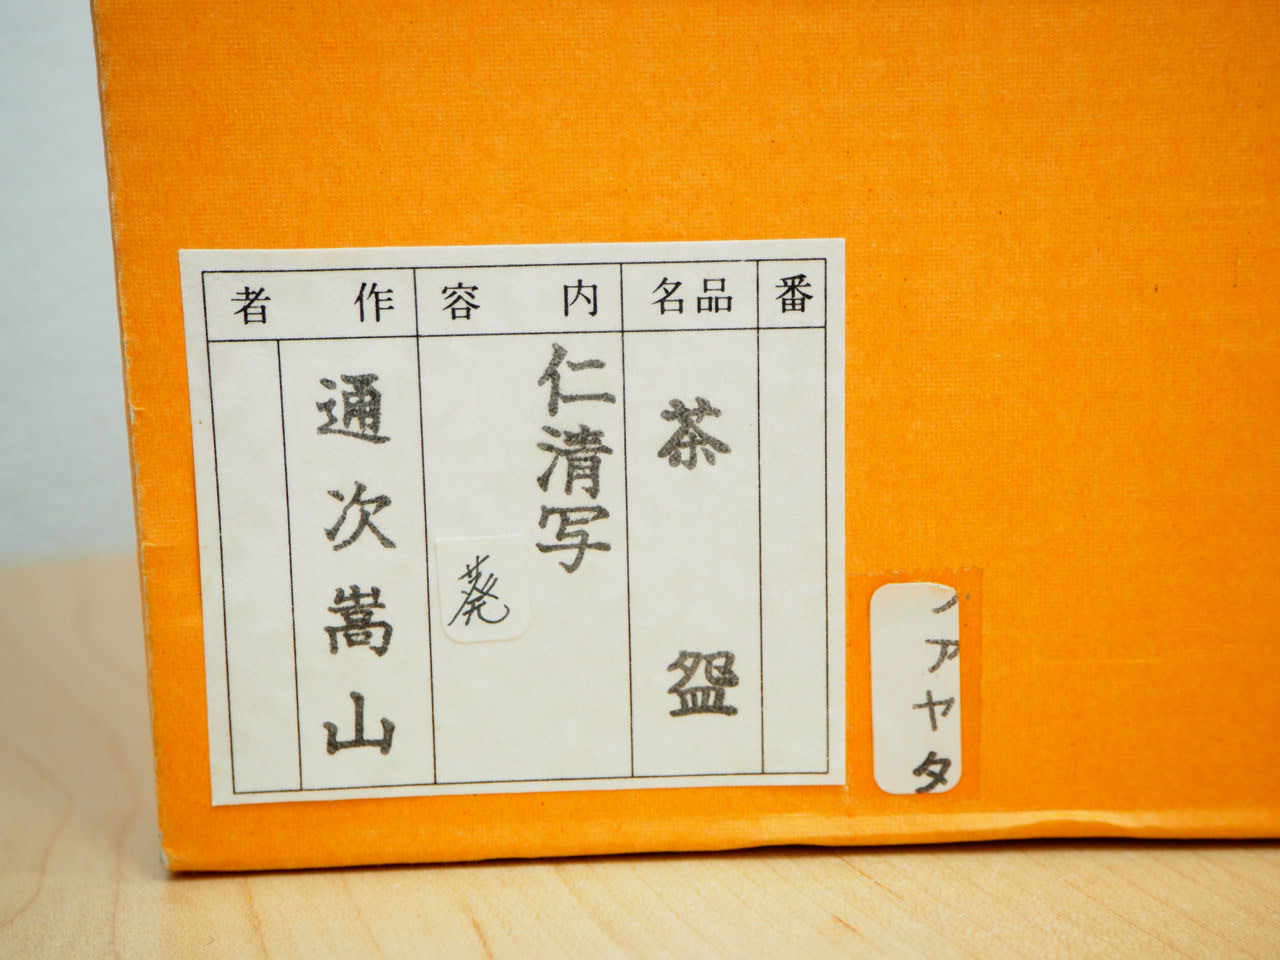 番
品名
内容
作者
茶盌
仁清写
葵
通次嵩山
アヤタ